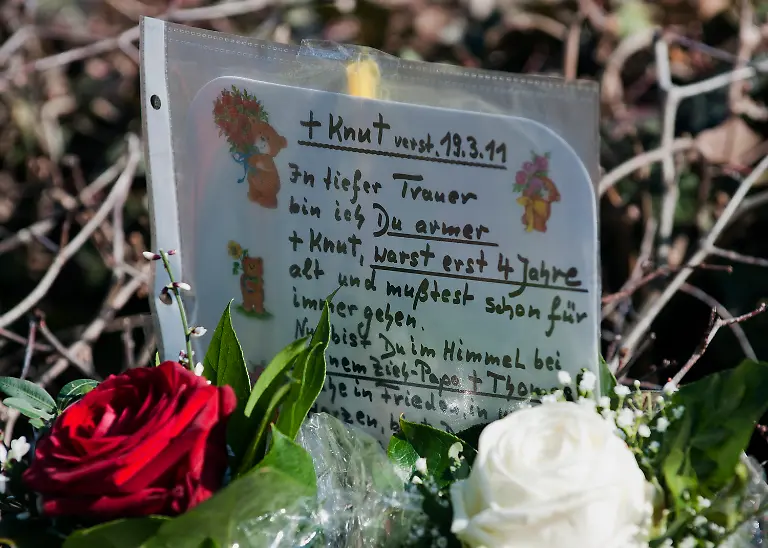 + Knut verst. 19.3.11
In tiefer Trauer
bin ich Du armer
+ Knut, warst erst 4 Jahre
alt und mußtest schon für
immer gehen.
Nu bist Du im Himmel bei
nem Zieh-Papa + Thom
he in frieden in
rzen,